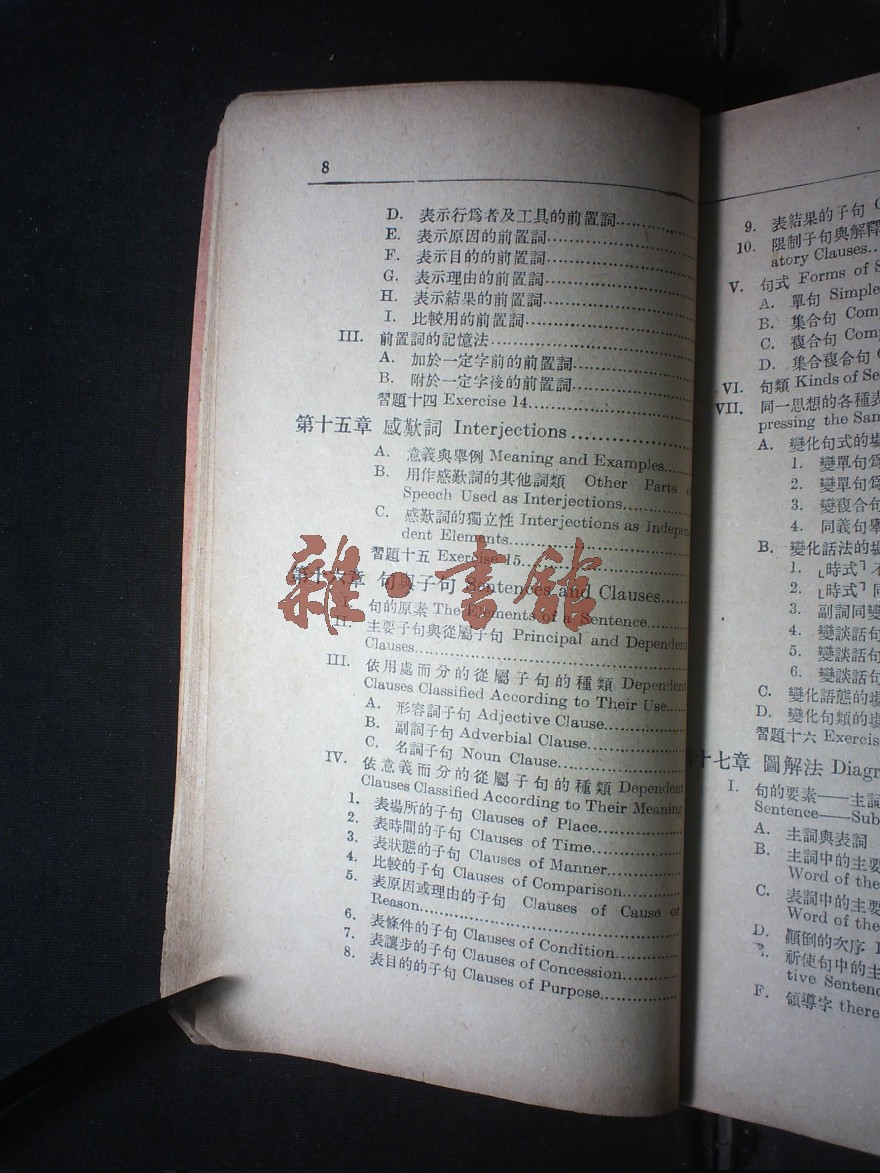 8
D. 表示行爲者及工具的前置詞
E. 表示原因的前置詞
F. 表示目的的前置詞
G. 表示理由的前置詞
H. 表示結果的前置詞
I. 比較用的前置詞
III. 前置詞的記憶法
A. 加於一定字前的前置詞
B. 附於一定字後的前置詞
習題十四 Exercise 14
第十五章 感歎詞 Interjections
A. 意義與舉例 Meaning and Examples
B. 用作感歎詞的其他詞類 Other Parts
Speech Used as Interjections
C. 感歎詞的獨立性 Interjections as Indepen-
dent Elements
習題十五 Exercise 15
第十六章 句與子句 Sentences and Clauses
I. 句的原素 The Elements of a Sentence
II. 主要子句與從屬子句 Principal and Dependent
Clauses
III. 依用處而分的從屬子句的種類 Dependent
Clauses Classified According to Their Use
A. 形容詞子句 Adjective Clause
B. 副詞子句 Adverbial Clause
C. 名詞子句 Noun Clause
IV. 依意義而分的從屬子句的種類 Dependent
Clauses Classified According to Their Meaning
1. 表場所的子句 Clauses of Place
2. 表時間的子句 Clauses of Time
3. 表狀態的子句 Clauses of Manner
4. 比較的子句 Clauses of Comparison
5. 表原因或理由的子句 Clauses of Cause or
Reason
6. 表條件的子句 Clauses of Condition
7. 表讓步的子句 Clauses of Concession
8. 表目的的子句 Clauses of Purpose
雜·書館
9. 表結果的子句
10. 限制子句與解釋
atory Clauses
V. 句式 Forms of S
A. 單句 Simple
B. 集合句 Com
C. 複合句 Com
D. 集合複合句
VI. 句類 Kinds of Se
VII. 同一思想的各種表
pressing the Sam
A. 變化句式的場
1. 變單句爲
2. 變單句爲
3. 變複合句
4. 同義句舉
B. 變化話法的場
1. 「時式」不
2. 「時式」同
3. 副詞同變
4. 變談話句
5. 變談話句
6. 變談話句
C. 變化語態的場
D. 變化句類的場
習題十六 Exercis
十七章 圖解法 Diagra
I. 句的要素——主詞
Sentence——Sub
A. 主詞與表詞
B. 主詞中的主要
Word of the
C. 表詞中的主要
Word of the
D. 顚倒的次序
祈使句中的主
tive Sentenc
F. 領導字 there